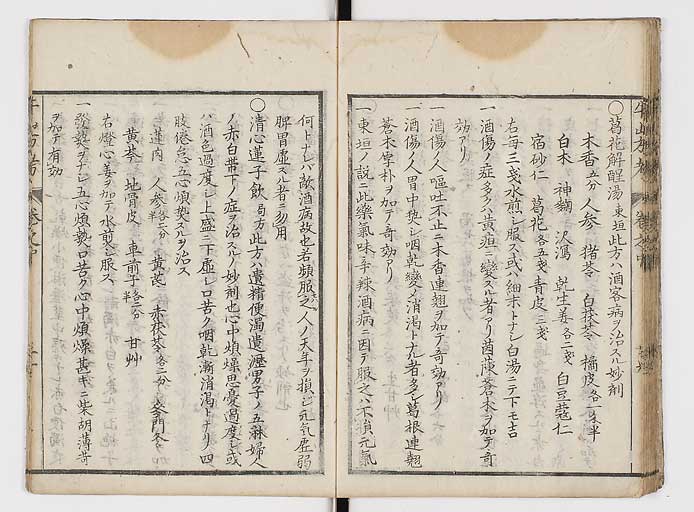 〇葛花解醒湯 東垣此方ハ酒客病ヲ治スル妙剤
木香五分 人参 猪苓 白茯苓 橘皮各一戔半
白朮 神麹 沢瀉 乾生姜各二戔 白豆蔲仁
宿砂仁 葛花各五戔 青皮三戔
右毎三戔水煎シ服ス或ハ細末トナシ白湯ニテ下モ吉
一酒傷ノ症多ク黄疸ニ変スル者アリ茵蔯蒼朮ヲ加テ奇
効アリ
一酒傷ノ人嘔吐不止ニ木香連翹ヲ加テ奇効アリ
一酒傷ノ人胃中熱シ咽乾変ノ消渇トナル者多シ葛根連翹
蒼朮厚朴ヲ加テ奇効アリ
一東垣ノ説ニ此藥氣味辛辣酒病ニ因テ服之不損元氣
何トナレハ敵酒病故也若頻服之人ノ天年ヲ損シ元気虚弱
脾胃虚スル者ニ勿用
〇清心蓮子飲 局方此方ハ遺精便濁遺瀝男子ノ五淋婦人
ノ赤白帯下ノ症ヲ治スルノ妙剤也心中煩燥思憂過度シ或
ハ酒色過度シ上盛ニ下虚シ口苦ク咽乾漸消渇トナリ四
肢倦怠五心煩熱スルヲ治ス
蓮肉 人参 黄芪 赤茯苓各二分 麦門冬
黄芩 地骨皮 車前子 甘艸
右燈心姜ヲ加テ水煎シ服ス
一發熱ヲナシ五心煩熱口苦ク心中煩燥甚キニ柴胡薄荷
ヲ加テ有効